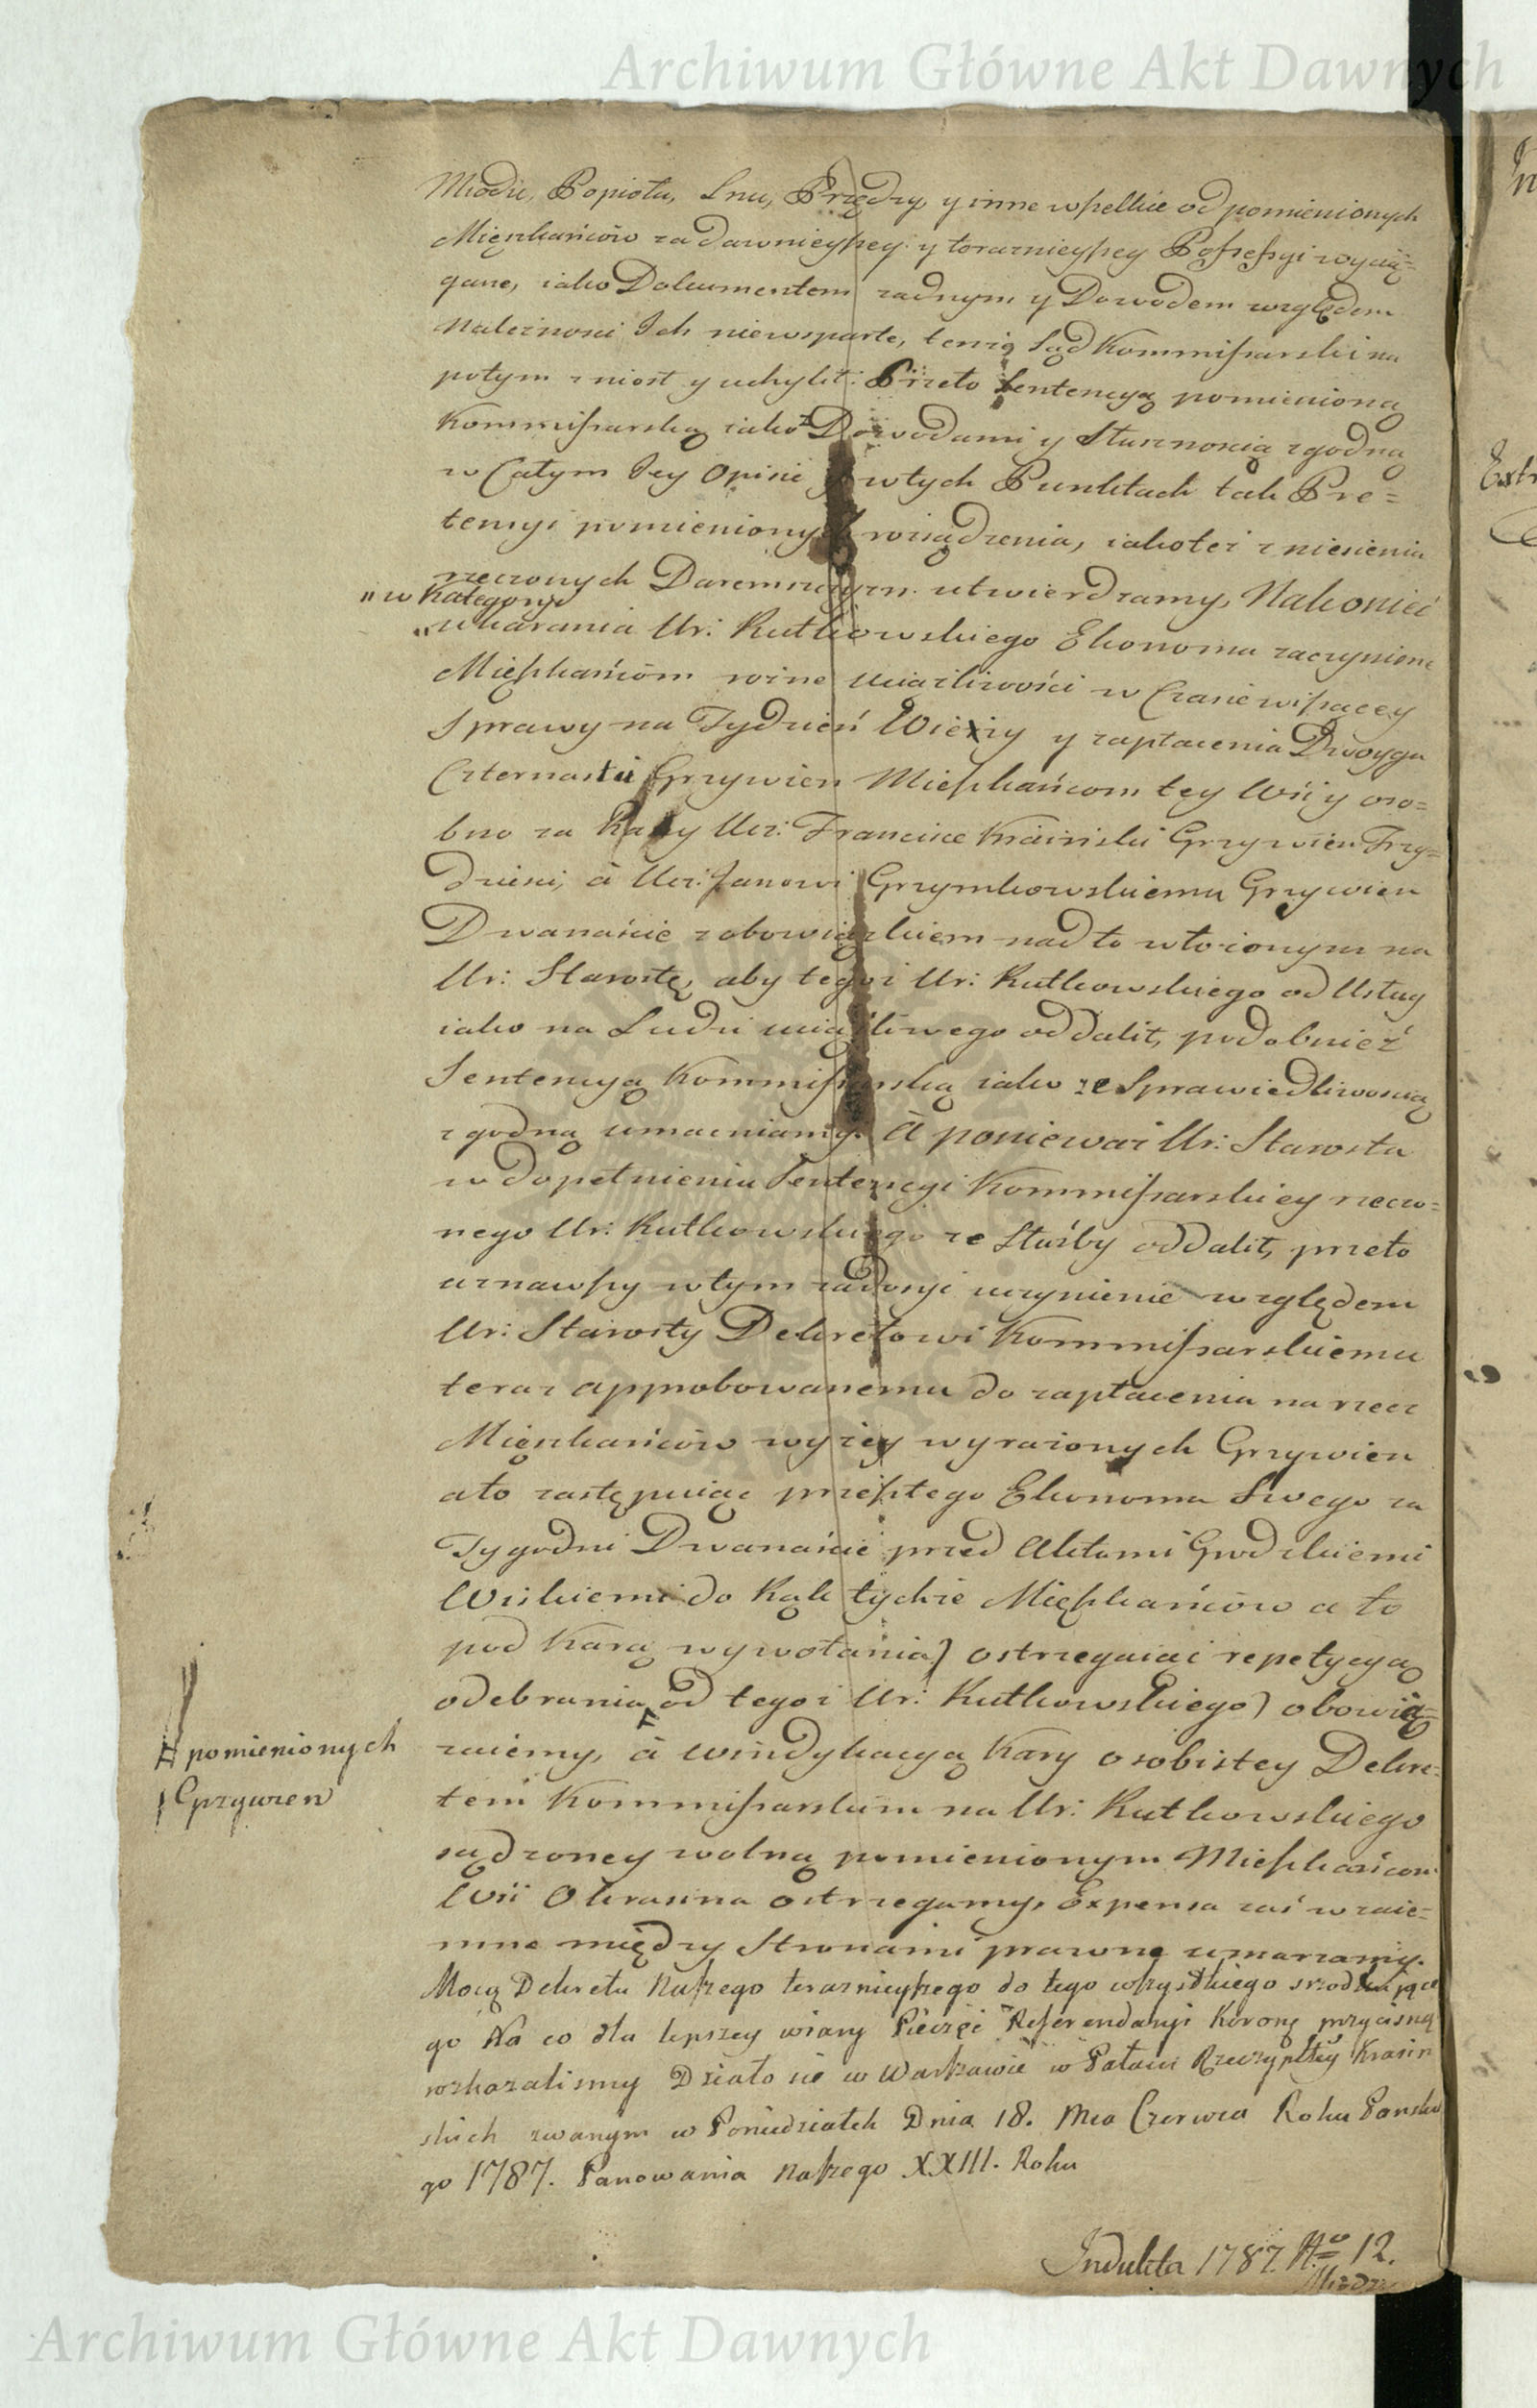 Archiwum Główne Akt Dawnych
Miodu, Popiołu, Lnu, Przędzy y inne wszelkie od pomienionych
Mięszkańców za dawnieyszey y teraznieyszey Possessyi wycią=
gane, iako Dokumentem żadnym y Dowodem względem
Należności Ich niewsparte, tenże Sąd Kommissarski na
potym zniosł y uchylił: Przeto Sentencyą pomienioną
Kommissarską iako z Dowodami y Słusznością zgodną
w Całym Jey Opisie y wtych Punktach tak Pre=
tensyi pomienionych wsądzenia, iakoteż zniesienia
rzeczonych Daremszczyzn utwierdzamy, Nakoniec
„w Kategoryi
„ukarania Ur: Rutkowskiego Ekonoma zaczynione
Mięszkańcom winę uciążliwości w Czasie wiszącey
Sprawy na Tydzień Wieży y zapłacenia Dwoyga
Czternastu Grzywien Mieszkańcom tey Wsi y oso=
bno za Razy Ucz: Francisce Kraińskiey Grzywien Trzy=
dzieści, à Ucz: Janowi Grzymkowskiemu Grzywien
Dwanaście z obowiązkiem nad to włożonym na
Ur: Starostę, aby tegoż Ur: Rutkowskiego od Usług
iako na Ludzi uciążliwego oddalił, podobnież
Sentencyą Kommissarską iako ze Sprawiedliwością
zgodną umacniamy. A ponieważ Ur: Starosta
w dopełnieniu Sentencyi Kommissarskiey rzeczo=
nego Ur: Rutkowskiego ze Służby oddalił, przeto
uznawszy wtym zadosyć uczynienie względem
Ur: Starosty Dekretowi Kommissarskiemu
teraz approbowanemu do zapłacenia na rzecz
Mięszkańców wyżey wyrażonych Grzywien
ato zastępuiąc przeszłego Ekonoma Swego za
Tygodni Dwanaście przed Aktami Grodzkiemi
Wiskiemi do Rąk tychże Mięszkańców a to
pod Karą wywołania) ostrzegaiąc repetycyą
odebrania od tegoż Ur: Rutkowskiego) obowią=
# pomienionych
Grzywien
zuiemy, à windykacyą Kary osobistey Dekre=
tem Kommissarskim na Ur: Rutkowskiego
sądzoney wolną pomienionym Mieszkańcom
Wsi Okrasina ostrzegamy, Expensa zaś wzaie=
mne między Stronami prawne umarzamy.
Mocą Dekretu Naszego teraznieyszego do tego wszystkiego srzodkującego
go Na co dla lepszey wiary Pieczęć Referendaryi Koronę przycisnąć
rozkazalismy Działo się w Warszawie w Pałacu Rzeczypltey Krasiń
skich zwanym w Poniedziałek Dnia 18. Mca Czerwca Roku Pańskie
go 1787. Panowania Naszego XXIII. Roku
Indukta 1787. No 12.
Archiwum Główne Akt Dawnych